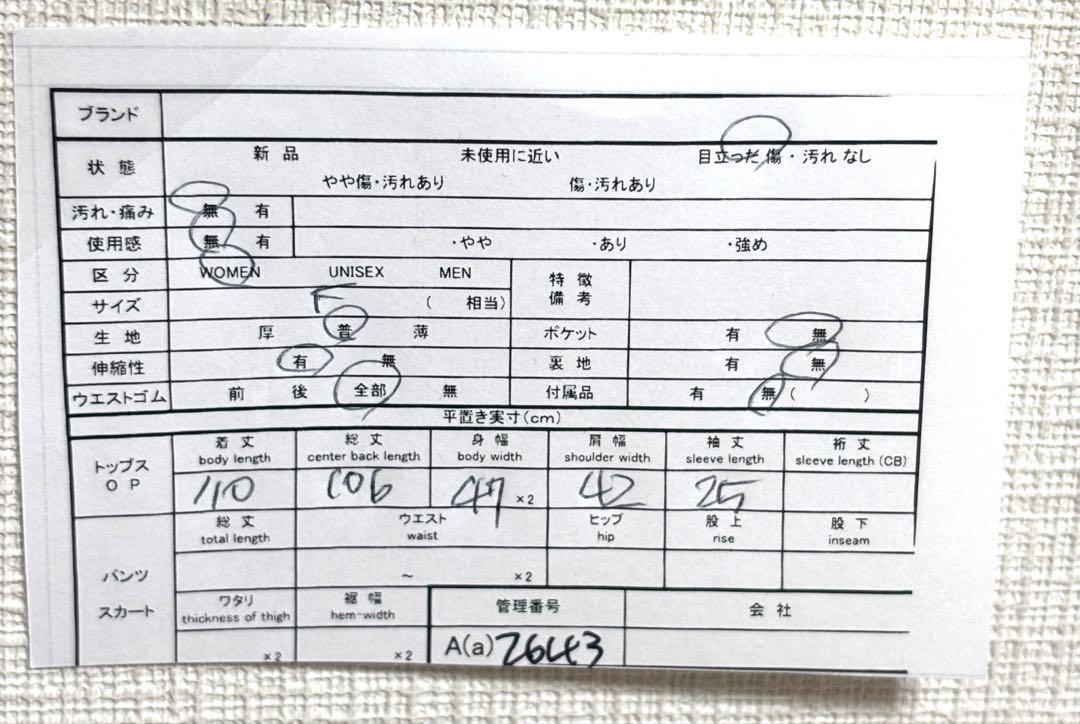 ブランド
状態 新品 未使用に近い 目立った傷・汚れなし
やや傷・汚れあり 傷・汚れあり
汚れ・痛み 無 有
使用感 無 有 ・やや ・あり ・強め
区分 WOMEN UNISEX MEN 特徴備考
サイズ F (相当)
生地 厚 普 薄 ポケット 有 無
伸縮性 有 無 裏地 有 無
ウエストゴム 前 後 全部 無 付属品 有 無 ( )
平置き実寸(cm)
トップス OP 着丈 総丈 身幅 肩幅 袖丈 裄丈
body length center back length body width shoulder width sleeve length sleeve length (CB)
110 106 47 ×2 42 25
パンツ スカート 総丈 ウエスト ヒップ 股上 股下
total length waist hip rise inseam
~ ×2
ワタリ 裾幅 管理番号 会社
thickness of thigh hem-width
×2 ×2 A(a) 26643